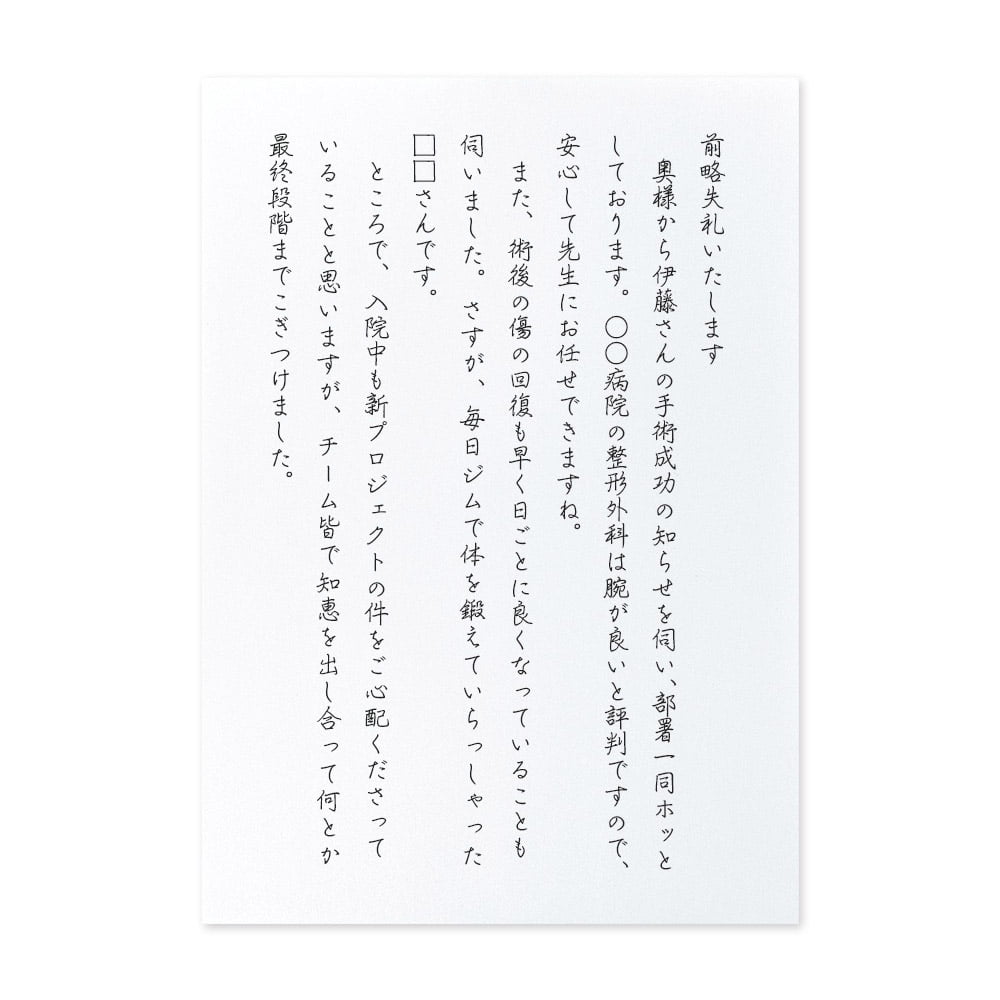 前略失礼いたします
奥様から伊藤さんの手術成功の知らせを伺い、部署一同ホッと
しております。〇〇病院の整形外科は腕が良いと評判ですので、
安心して先生にお任せできますね。
また、術後の傷の回復も早く日ごとに良くなっていることも
伺いました。さすが、毎日ジムで体を鍛えていらっしゃった
□□さんです。
ところで、入院中も新プロジェクトの件をご心配くださって
いることと思いますが、チーム皆で知恵を出し合って何とか
最終段階までこぎつけました。